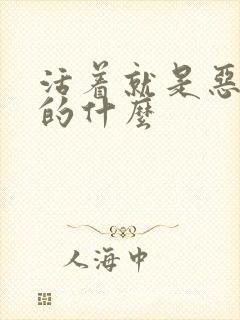 活着就是恶
的什麽
人海中